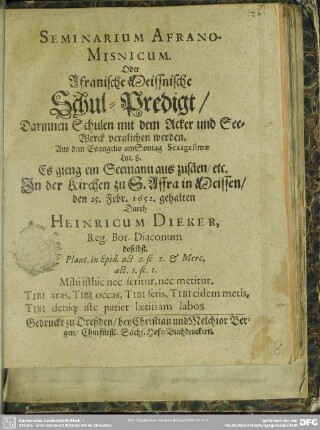 SEMINARIUM AFRANO-
MISNICUM.
Oder
Afranische Meissnische
Schul-Predigt/
Darinnen Schulen mit dem Acker und See-
Werck verglichen werden.
Aus dem Evangelio am Sontag Sexagesimæ
Luc. 8.
Es gieng ein Seemann aus zusäen/ etc.
In der Kirchen zu S. Affra in Meissen/
den 25. Febr. 1652. gehalten
Durch
HEINRICUM DIEKER,
Reg. Bor. Diaconum
doselbst.
Plaut. in Epid. act. 2. sc. 2. & Merc.
act. 1. sc. 1.
Mihi isthic nec seritur, nec metitur.
TIBI aras, TIBI occas, TIBI seris, TIBI eidem metis,
TIBI deniq; iste pariet lætitiam labos
Gedruckt zu Dreßden/ bey Christian und Melchior Ber-
gen/ Churfürstl. Sächs. Hoff-Buchdruckern.